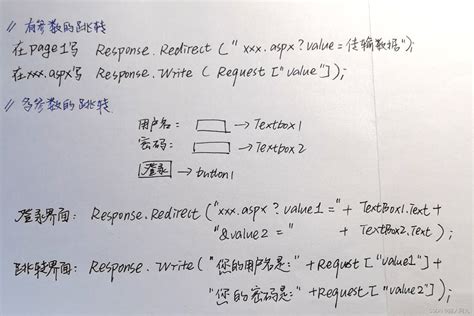 // 有参数的跳转
在page1写 Response.Redirect ("xxx.aspx?value=传输数据");
在xxx.aspx写 Response.Write ( Request["value"]);
// 多参数的跳转
用户名： → Textbox1
密码： → Textbox2
登录 → button1
登录界面： Response.Redirect ("xxx.aspx?value1="+ TextBox1.Text +
"&value2 =" + TextBox2.Text );
跳转界面： Response.Write("你的用户名是:" +Request["value1"] +
"您的密码是:" +Request["value2"]);